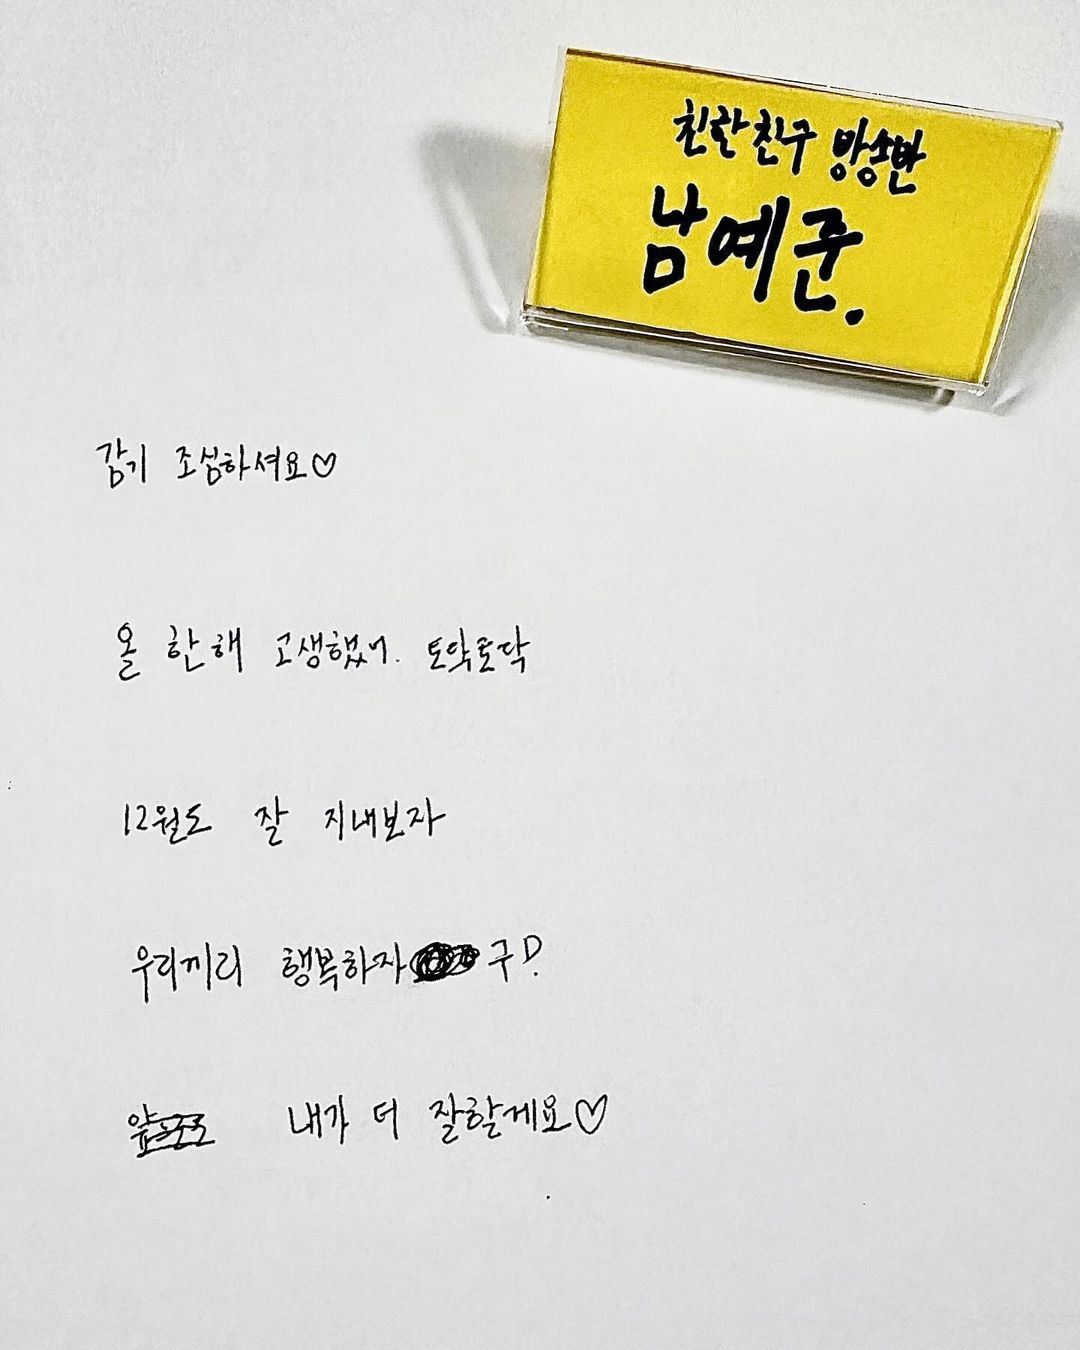 친한친구 방송반
남예준.
감기 조심하셔요♡
올 한해 고생했어. 토닥토닥
12월도 잘 지내보자
우리끼리 행복하자구!
내가 더 잘할게요♡